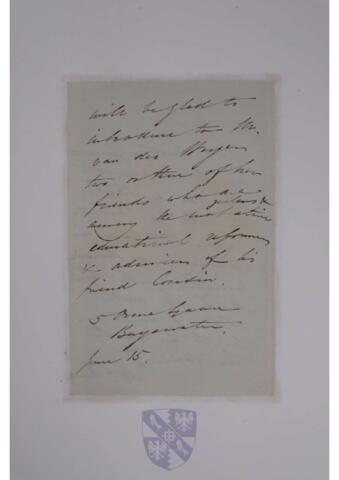 will be glad to
introduce to M.
van de Weyer
two or three of her
friends who are
among the most active
educational reformers
& admirers of his
friend Cousin.
5
Bayswater.
June 15.